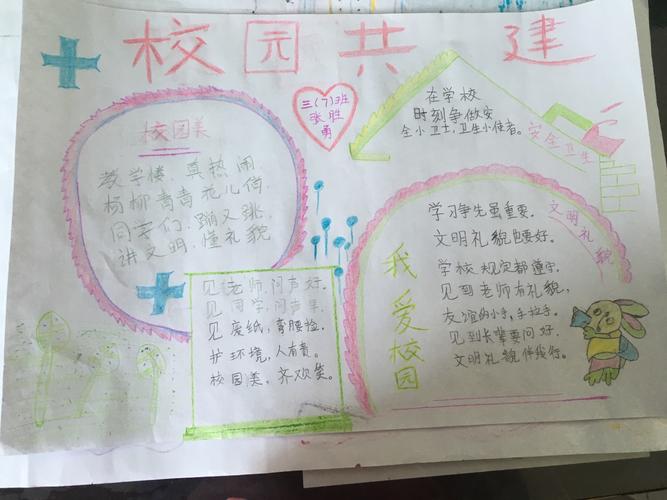 校园共建
三(7)班
张胜
勇
校园美
教学楼，真热闹，
杨柳青青花儿俏，
同学们，蹦又跳，
讲文明，懂礼貌。
在学校
时刻争做安
全小卫士，卫生小使者。
安全卫生
见老师，问声好。
见同学，问声早
见废纸，弯腰捡，
护环境，人有责。
校园美，齐欢笑。
我爱校园
文明礼貌
学习争先虽重要，
文明礼貌也要好。
学校规定都遵守，
见到老师有礼貌，
友谊的小手，手拉手。
见到长辈要问好，
文明礼貌伴我行。